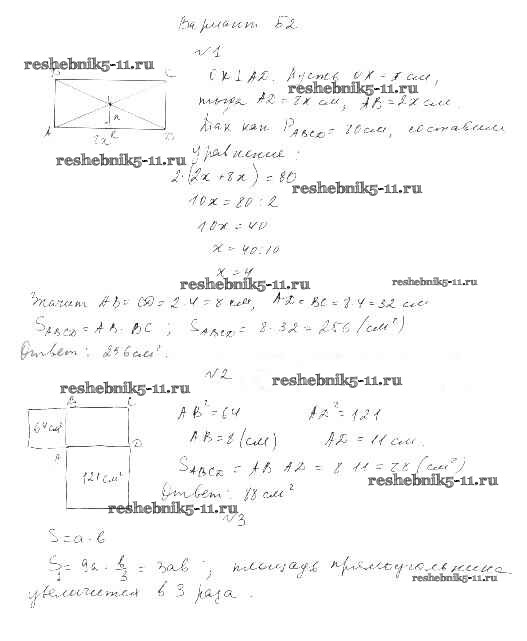 Вариант Б2
№1
reshebnik5-11.ru
B C
OK⊥AD. Пусть OK = x см,
reshebnik5-11.ru
тогда AD = 8x см, AB = 2x см.
x
A K D
8x
Так как P_ABCD = 80см, составим
reshebnik5-11.ru
уравнение:
2·(2x + 8x) = 80
reshebnik5-11.ru
10x = 80 : 2
10x = 40
x = 40:10
x = 4
reshebnik5-11.ru
reshebnik5-11.ru
Значит AB = CD = 2·4 = 8 см, AD = BC = 8·4 = 32 см
S_ABCD = AB·BC ; S_ABCD = 8·32 = 256 (см²)
Ответ: 256см².
№2
reshebnik5-11.ru
reshebnik5-11.ru
B C
64см²
A D
121 см²
AB² = 64 AD² = 121
AB = 8 (см) AD = 11 см.
S_ABCD = AB·AD = 8·11 = 88 (см²)
reshebnik5-11.ru
Ответ: 88 см²
reshebnik5-11.ru
№3
S = a·b
S₁ = 9a · b/3 = 3ab ; площадь прямоугольника
reshebnik5-11.ru
увеличится в 3 раза.